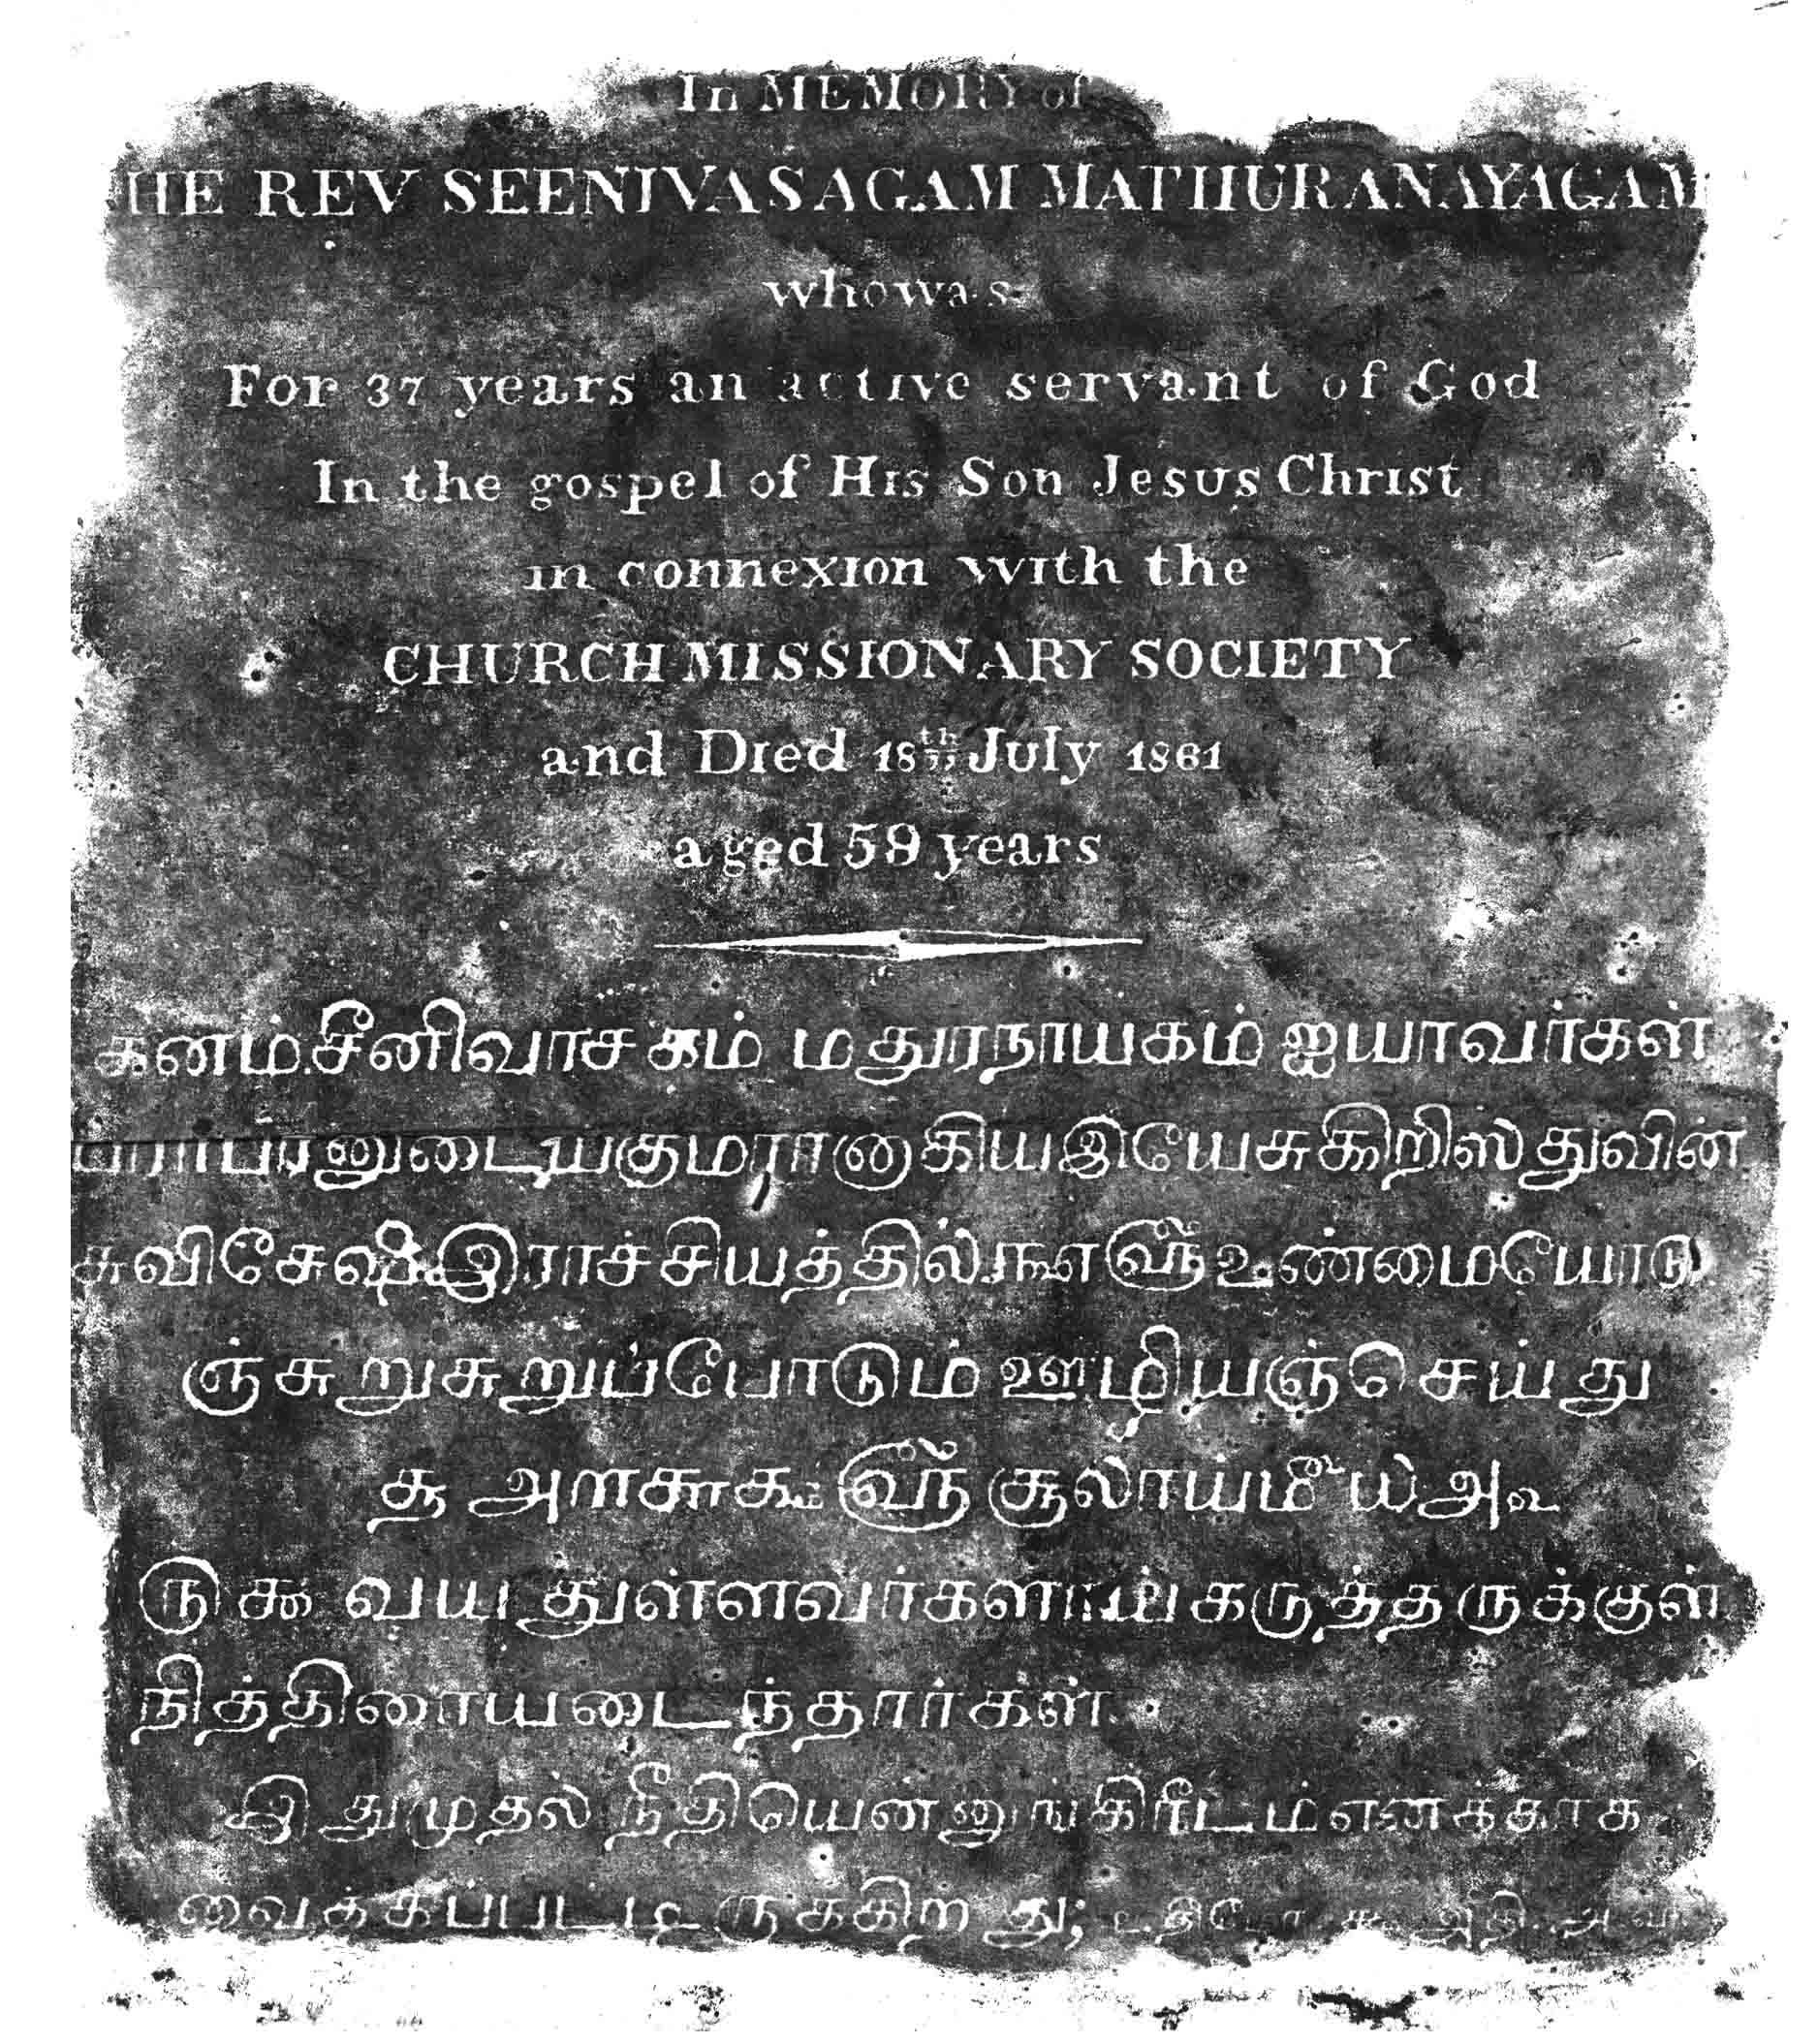 In MEMORY of
HE REV SEENIVASAGAM MATHURANAYAGAM
who was
For 37 years an active servant of God
In the gospel of His Son Jesus Christ
in connexion with the
CHURCH MISSIONARY SOCIETY
and Died 18th July 1861
aged 59 years
கனம்.சீனிவாசகம் மதுரநாயகம் ஐயாவர்கள்
பராபரனுடையகுமாரனாகியஇயேசுகிறிஸ்துவின்
சுவிசேஷ இராச்சியத்தில் ௩௭ ௵ உண்மையோடு
ஞ்சுறுசுறுப்போடும் ஊழியஞ்செய்து
௲ ௮௱௬௰௧ ௵ சூலாய்மீ ௰௮உ
௫௯ வயதுள்ளவர்களாய் கருத்தருக்குள்
நித்திரையடைந்தார்கள்.
இதுமுதல் நீதியென்னுங்கிரீடம்எனக்காக
வைக்கப்பட்டிருக்கிறது;